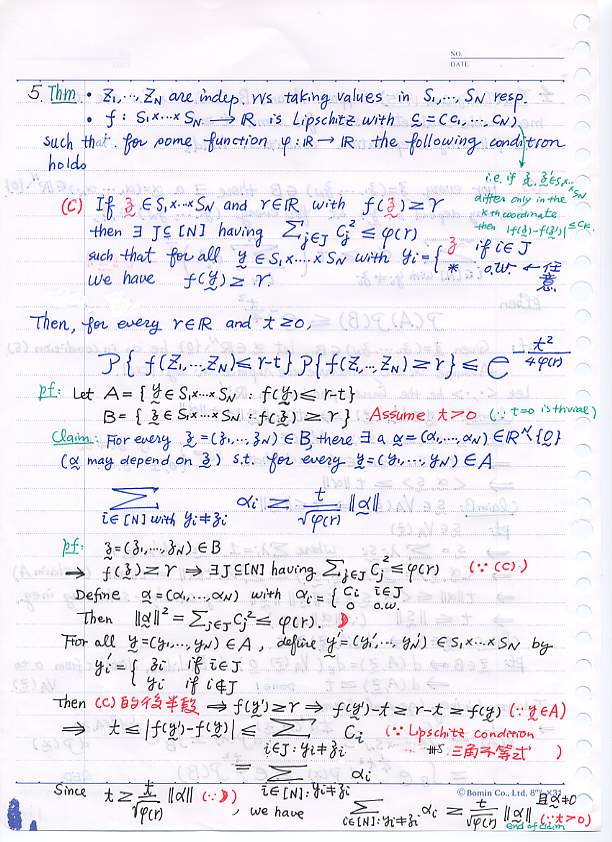 NO.
DATE
5. Thm • Z₁,…, Z_N are indep. rvs taking values in S₁,…, S_N resp.
• f : S₁×…×S_N → ℝ is Lipschitz with c̰ = (C₁,…, C_N)
such that for some function φ: ℝ → ℝ the following condition
holds
i.e. if z̰, z̰' ∈ S₁×…×S_N
differ only in the
kth coordinate
then |f(z̰)-f(z̰')| ≤ C_k
(C) If z̰ ∈ S₁×…×S_N and r∈ℝ with f(z̰) ≥ r
then ∃ J⊆[N] having Σ_{j∈J} C_j² ≤ φ(r)
such that for all y̰ ∈ S₁×…×S_N with y_i = { z_i if i∈J
* o.w. ← 任意
we have f(y̰) ≥ r.
Then, for every r∈ℝ and t≥0,
P{ f(Z₁,…,Z_N) ≤ r-t } P{ f(Z₁,…,Z_N) ≥ r } ≤ e^{-t²/4φ(r)}
pf: Let A = { y̰ ∈ S₁×…×S_N : f(y̰) ≤ r-t }
B = { z̰ ∈ S₁×…×S_N : f(z̰) ≥ r } Assume t>0 (∵ t=0 is thivial)
Claim: For every z̰ = (z₁,…, z_N) ∈ B, there ∃ a α̰ = (α₁,…, α_N) ∈ ℝ^N\{0̰}
(α̰ may depend on z̰) s.t. for every y̰ = (y₁,…, y_N) ∈ A
Σ_{i∈[N] with y_i≠z_i} α_i ≥ t/√φ(r) ‖α̰‖
pf: z̰ = (z₁,…, z_N) ∈ B
⇒ f(z̰) ≥ r ⇒ ∃ J⊆[N] having Σ_{j∈J} C_j² ≤ φ(r) (∵ (C).)
Define α̰ = (α₁,…, α_N) with α_i = { C_i i∈J
0 o.w.
Then ‖α̰‖² = Σ_{j∈J} C_j² ≤ φ(r). 》
For all y̰ = (y₁,…, y_N) ∈ A, define y̰' = (y₁',…, y_N') ∈ S₁×…×S_N by
y_i' = { z_i if i∈J
y_i if i∉J
Then (C)的後半段 ⇒ f(y̰') ≥ r ⇒ f(y̰')-t ≥ r-t ≥ f(y̰) (∵ y̰∈A)
⇒ t ≤ |f(y̰')-f(y̰)| ≤ Σ_{i∈J: y_i≠z_i} C_i (∵ Lipschitz condition
#5 三角不等式 )
= Σ_{i∈[N]: y_i≠z_i} α_i
Since t ≥ t/√φ(r) ‖α̰‖ (∵ 》), we have Σ_{i∈[N]: y_i≠z_i} α_i ≥ t/√φ(r) ‖α̰‖ 且 α̰≠0
(∵ t>0)
end of claim
©Bomin Co., Ltd.